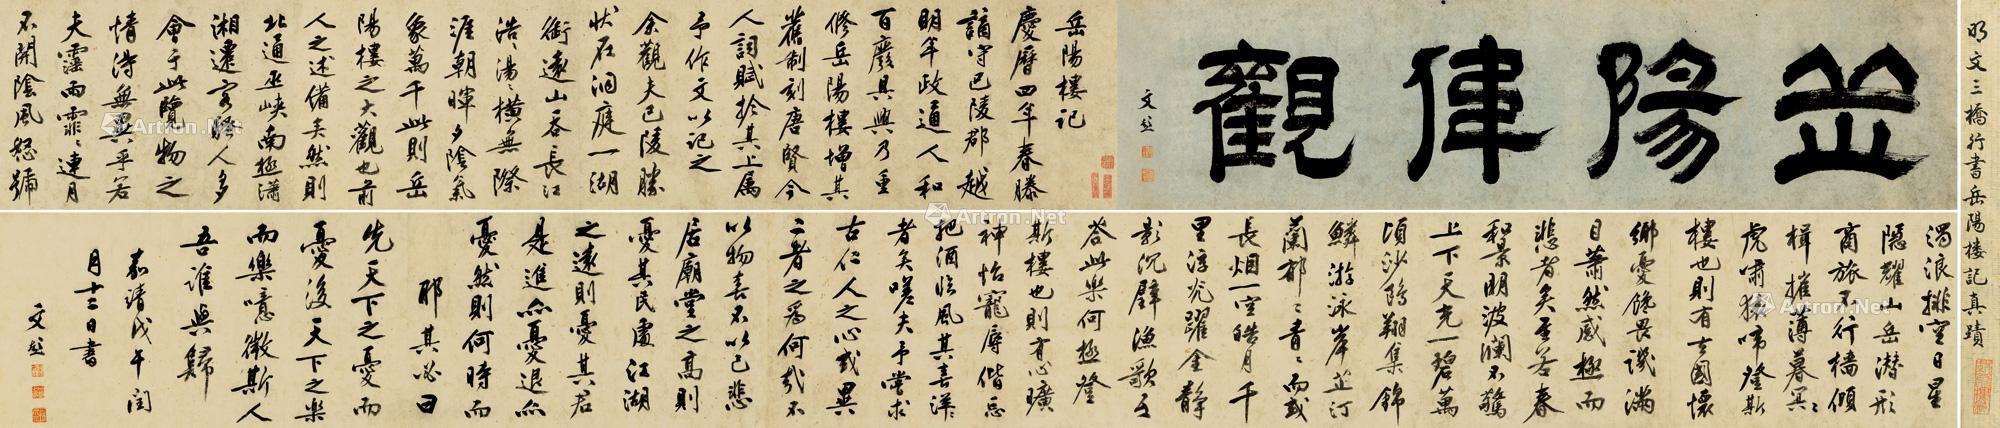 明文三橋行書岳陽樓記真蹟
岳陽偉觀
文彭
岳陽樓記
慶曆四年春滕
謫守巴陵郡越
明年政通人和
百廢具興乃重
修岳陽樓增其
舊制刻唐賢今
人詞賦於其上屬
予作文以記之
余觀夫巴陵勝
狀在洞庭一湖
銜遠山吞長江
浩〻湯〻橫無際
涯朝暉夕陰氣
象萬千此則岳
陽樓之大觀也前
人之述備矣然則
北通巫峽南極瀟
湘遷客騷人多
會于此覽物之
情得無異乎若
夫霪雨霏〻連月
不開陰風怒號
濁浪排空日星
隱耀山岳潛形
商旅不行檣傾
楫摧薄暮冥〻
虎嘯猿啼登斯
樓也則有去國懷
鄉憂讒畏譏滿
目蕭然感極而
悲者矣至若春
和景明波瀾不驚
上下天光一碧萬
頃沙鷗翔集錦
鱗游泳岸芷汀
蘭郁〻青〻而或
長烟一空皓月千
里浮光躍金靜
影沉璧漁歌互
答此樂何極登
斯樓也則有心曠
神怡寵辱偕忘
把酒临風其喜洋
者矣嗟夫予嘗求
古仁人之心或異
二者之為何哉不
以物喜不以己悲
居廟堂之高則
憂其民處江湖
之遠則憂其君
是進亦憂退亦
憂然則何時而
耶其必曰
先天下之憂而
憂後天下之樂
而樂噫微斯人
吾誰與歸
嘉靖戊午閏
月十二日書
文彭
Artron.Net
Artron.Net
Artron.Net
Artron.Net
Artron.Net